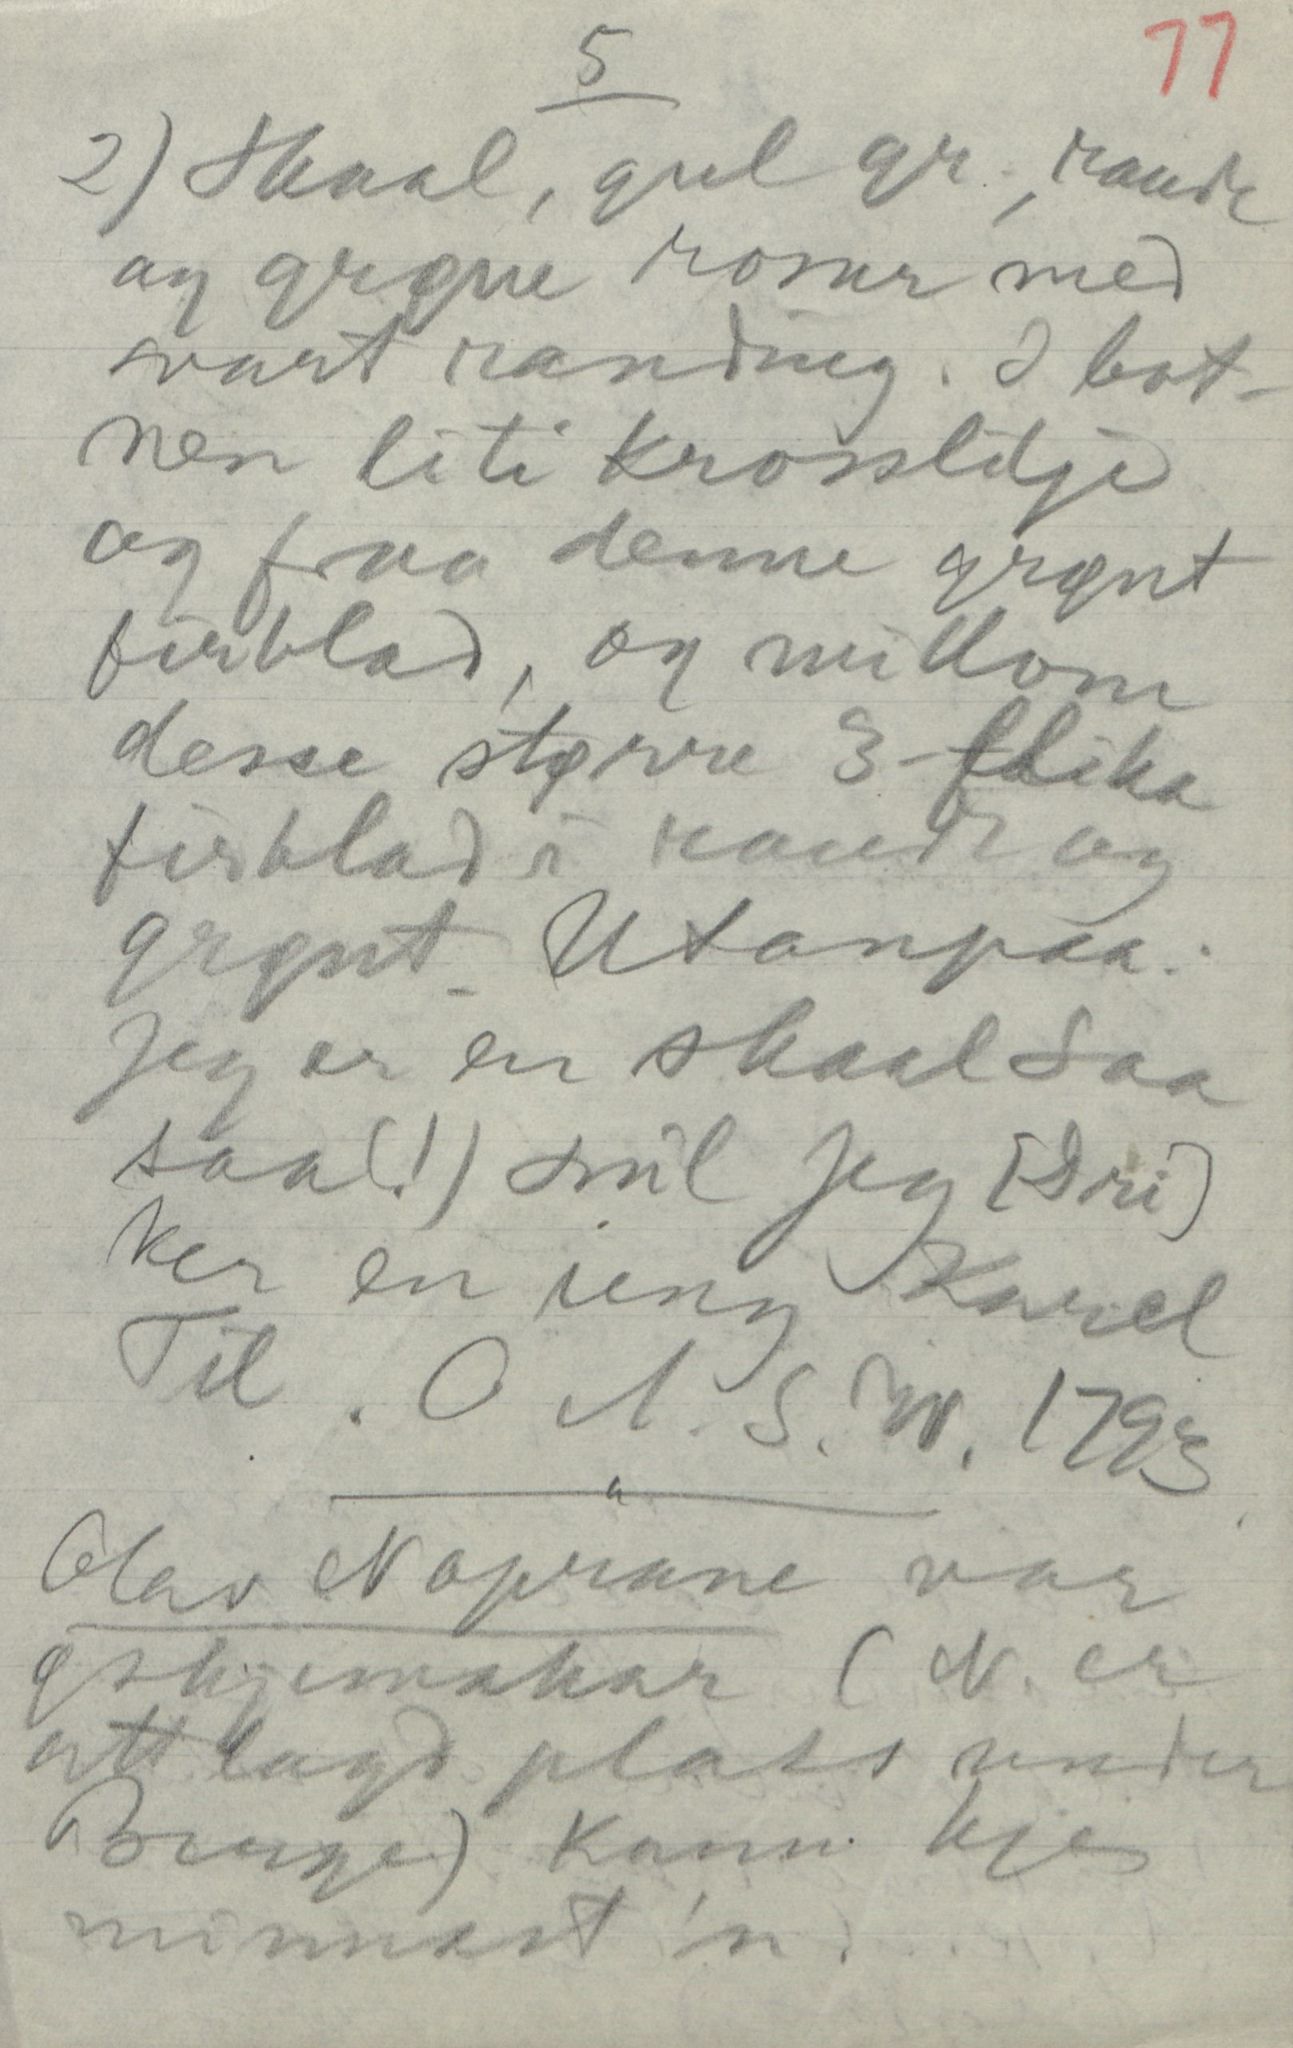 5
77
2) Skaal, gul gr., raude
og grøne rosur med
svart randing. I bot-
nen liti krosslilje
og fraa denne grønt
firblad, og millom
desse større 3-flika
firblad i raudt og
grønt. Utanpaa:
Jeg er en skaal Saa
saa(!) smil Jeg [Dri]
ker en ieng Karel
Til . O A. S. W. 1793
Olav Naprane var
øskjemakar ( N. er
att lagd plass under
Bcunge) Kann kje
minnast 'n.